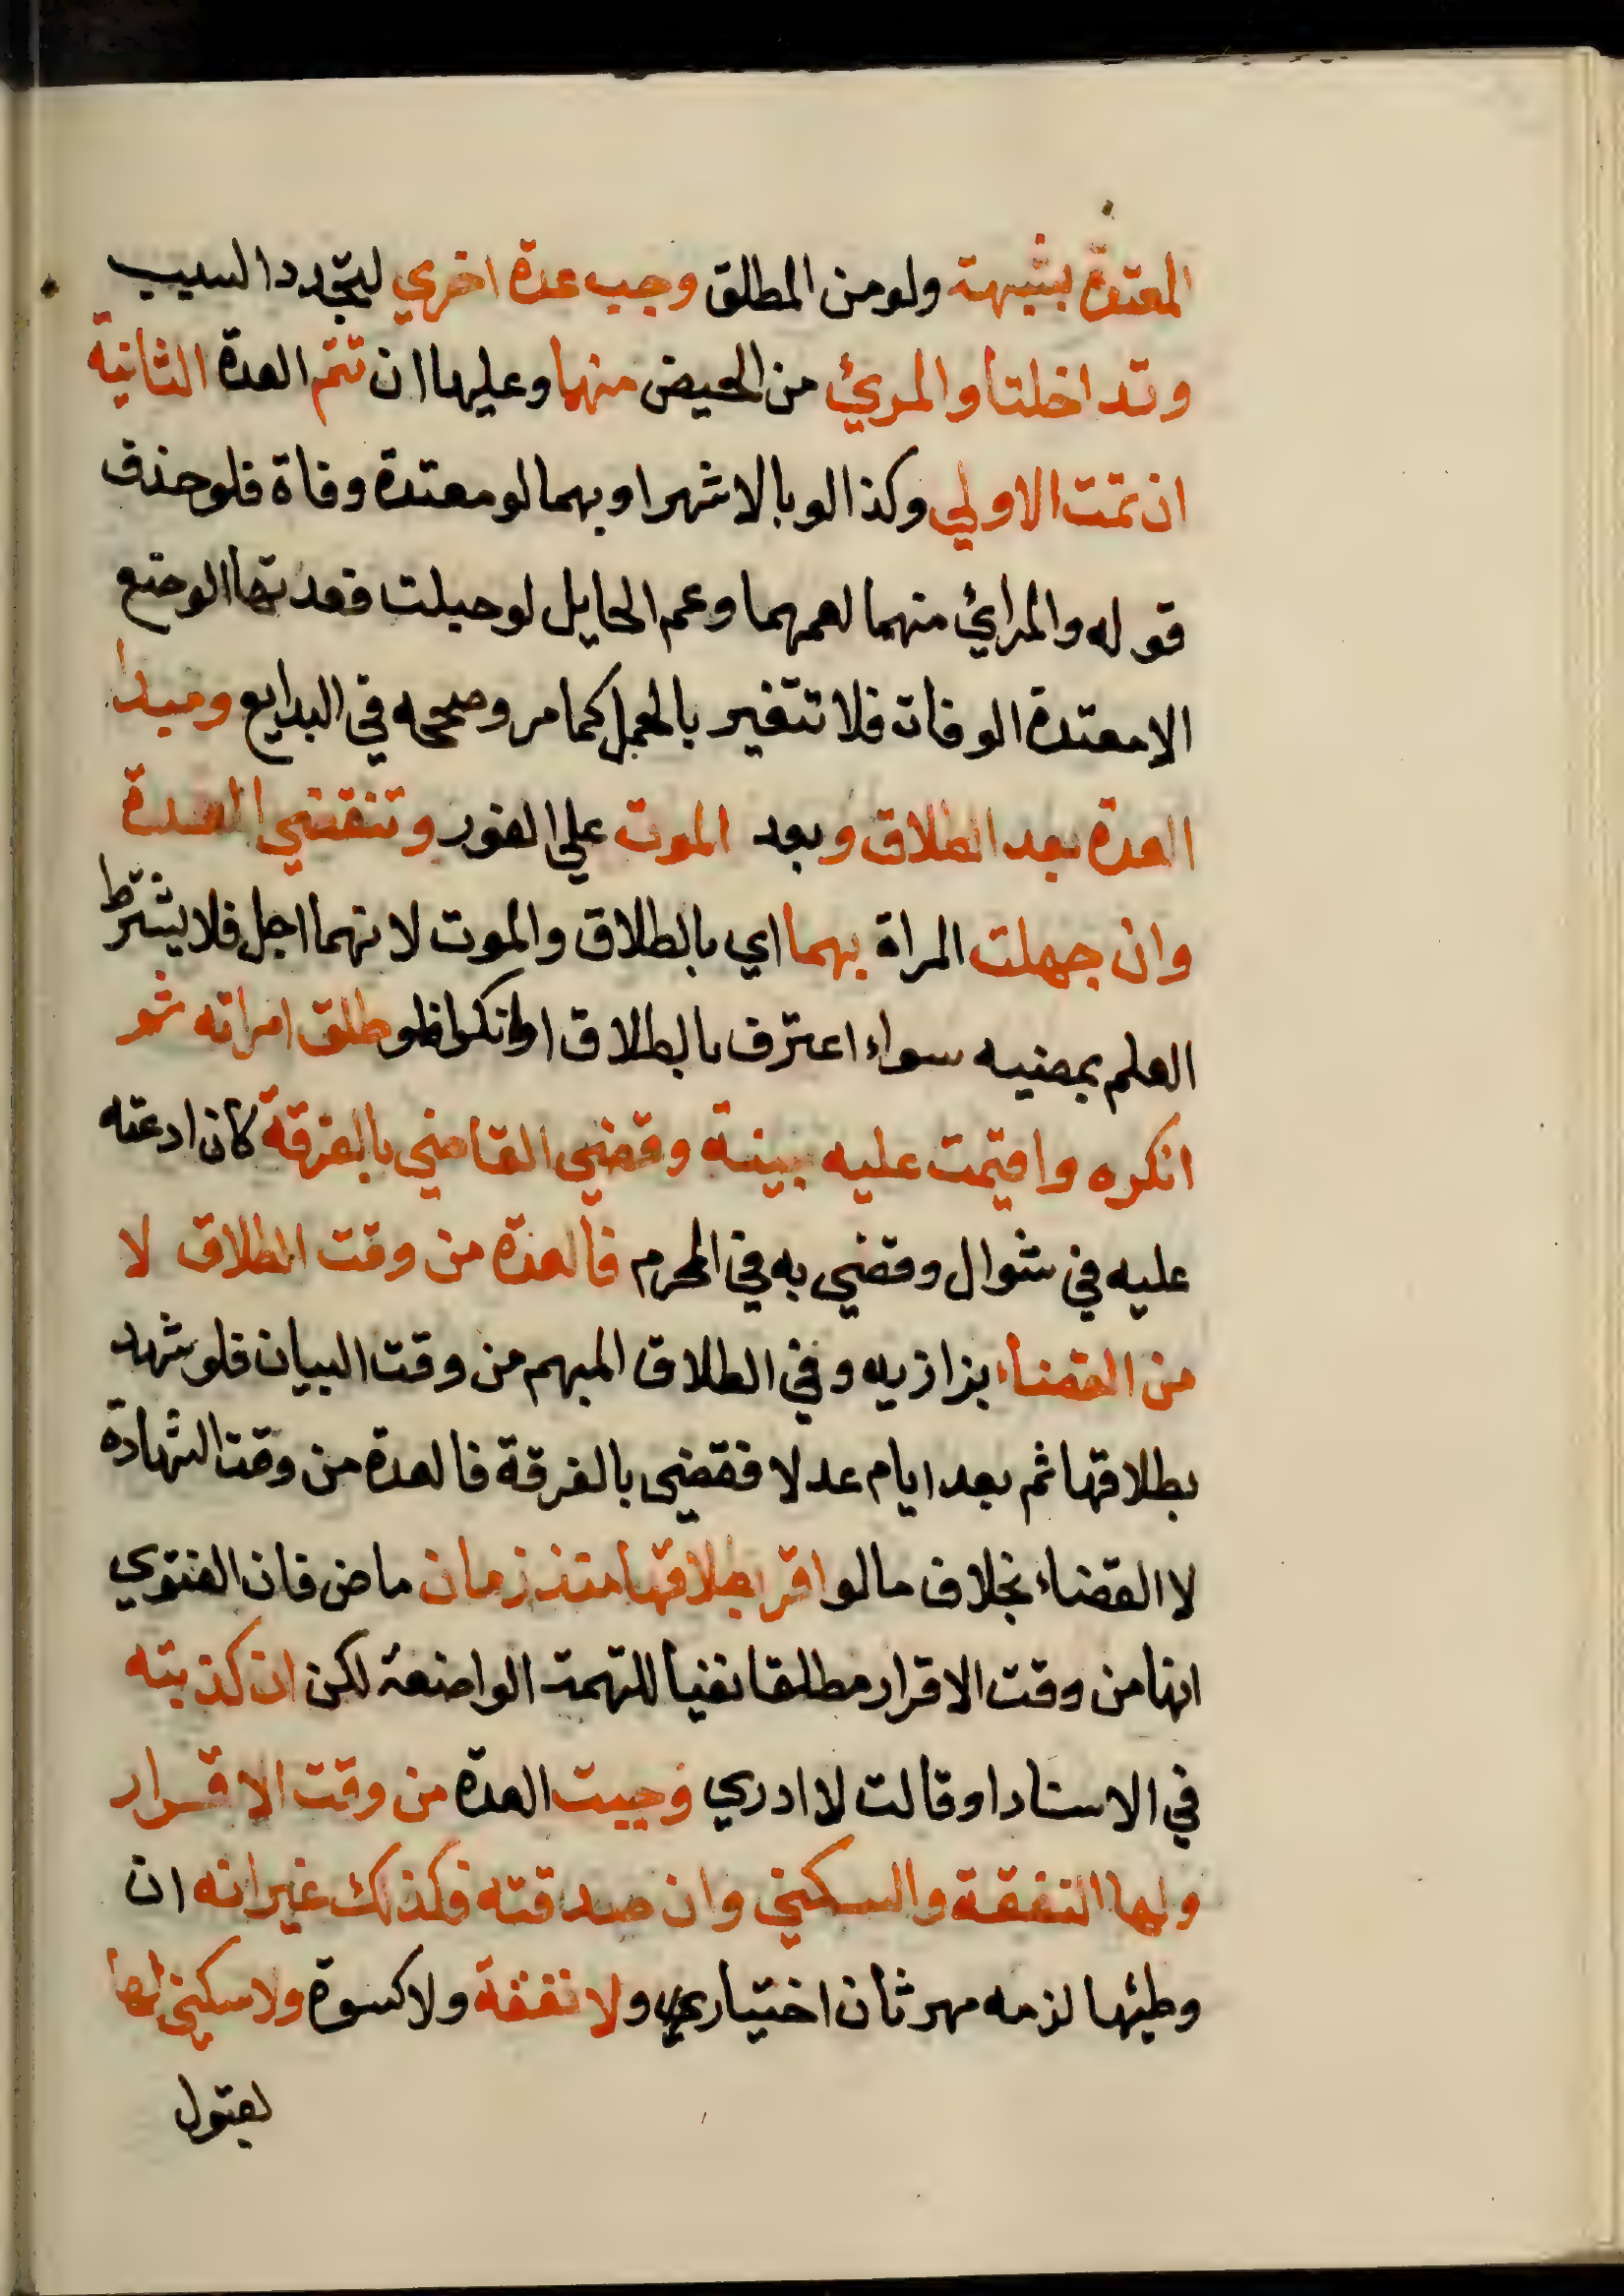 المعتدة بشبهة ولو من المطلق وجب عدة اخري لتجدد السبب
وتداخلتا والمرئ من الحيض منهما وعليها ان تتم العدة الثانية
ان تمت الاولي وكذا لو بالاشهر او بهما لو معتدة وفاة فلو حذف
قوله والمرائ منهما لعمهما وعم الحايل لو حبلت فعدتها الوضع
الا معتدة الوفات فلا تتغير بالحمل كما مر وصححه في البدايع ومبدا
العدة بعد الطلاق وبعد الموت علي الفور وتنقضي العدة
وان جهلت المراة بهما اي بالطلاق والموت لانهما اجل فلا يشترط
العلم بمضيه سواء اعترف بالطلاق او انكر فلو طلق امراته ثم
انكره واقيمت عليه بينة وقضي القاضي بالفرقة كان ادعته
عليه في شوال وقضي به في المحرم فالعدة من وقت الطلاق لا
من القضاء بزازيه وفي الطلاق المبهم من وقت البيان فلو شهد
بطلاقها ثم بعد ايام عدلا فقضي بالفرقة فالعدة من وقت الشهادة
لا القضاء بخلاف ما لو اقر بطلاقها منذ زمان ماض فان الفتوي
انها من وقت الاقرار مطلقا نفيا للتهمة الواضعة لكن ان كذبته
في الاسناد او قالت لا ادري وجبت العدة من وقت الاقرار
ولها النفقة والسكني وان صدقته فكذلك غير انه ان
وطئها لزمه مهر ثان اختياري ولا نفقة ولا كسوة ولا سكني لها
لقبول